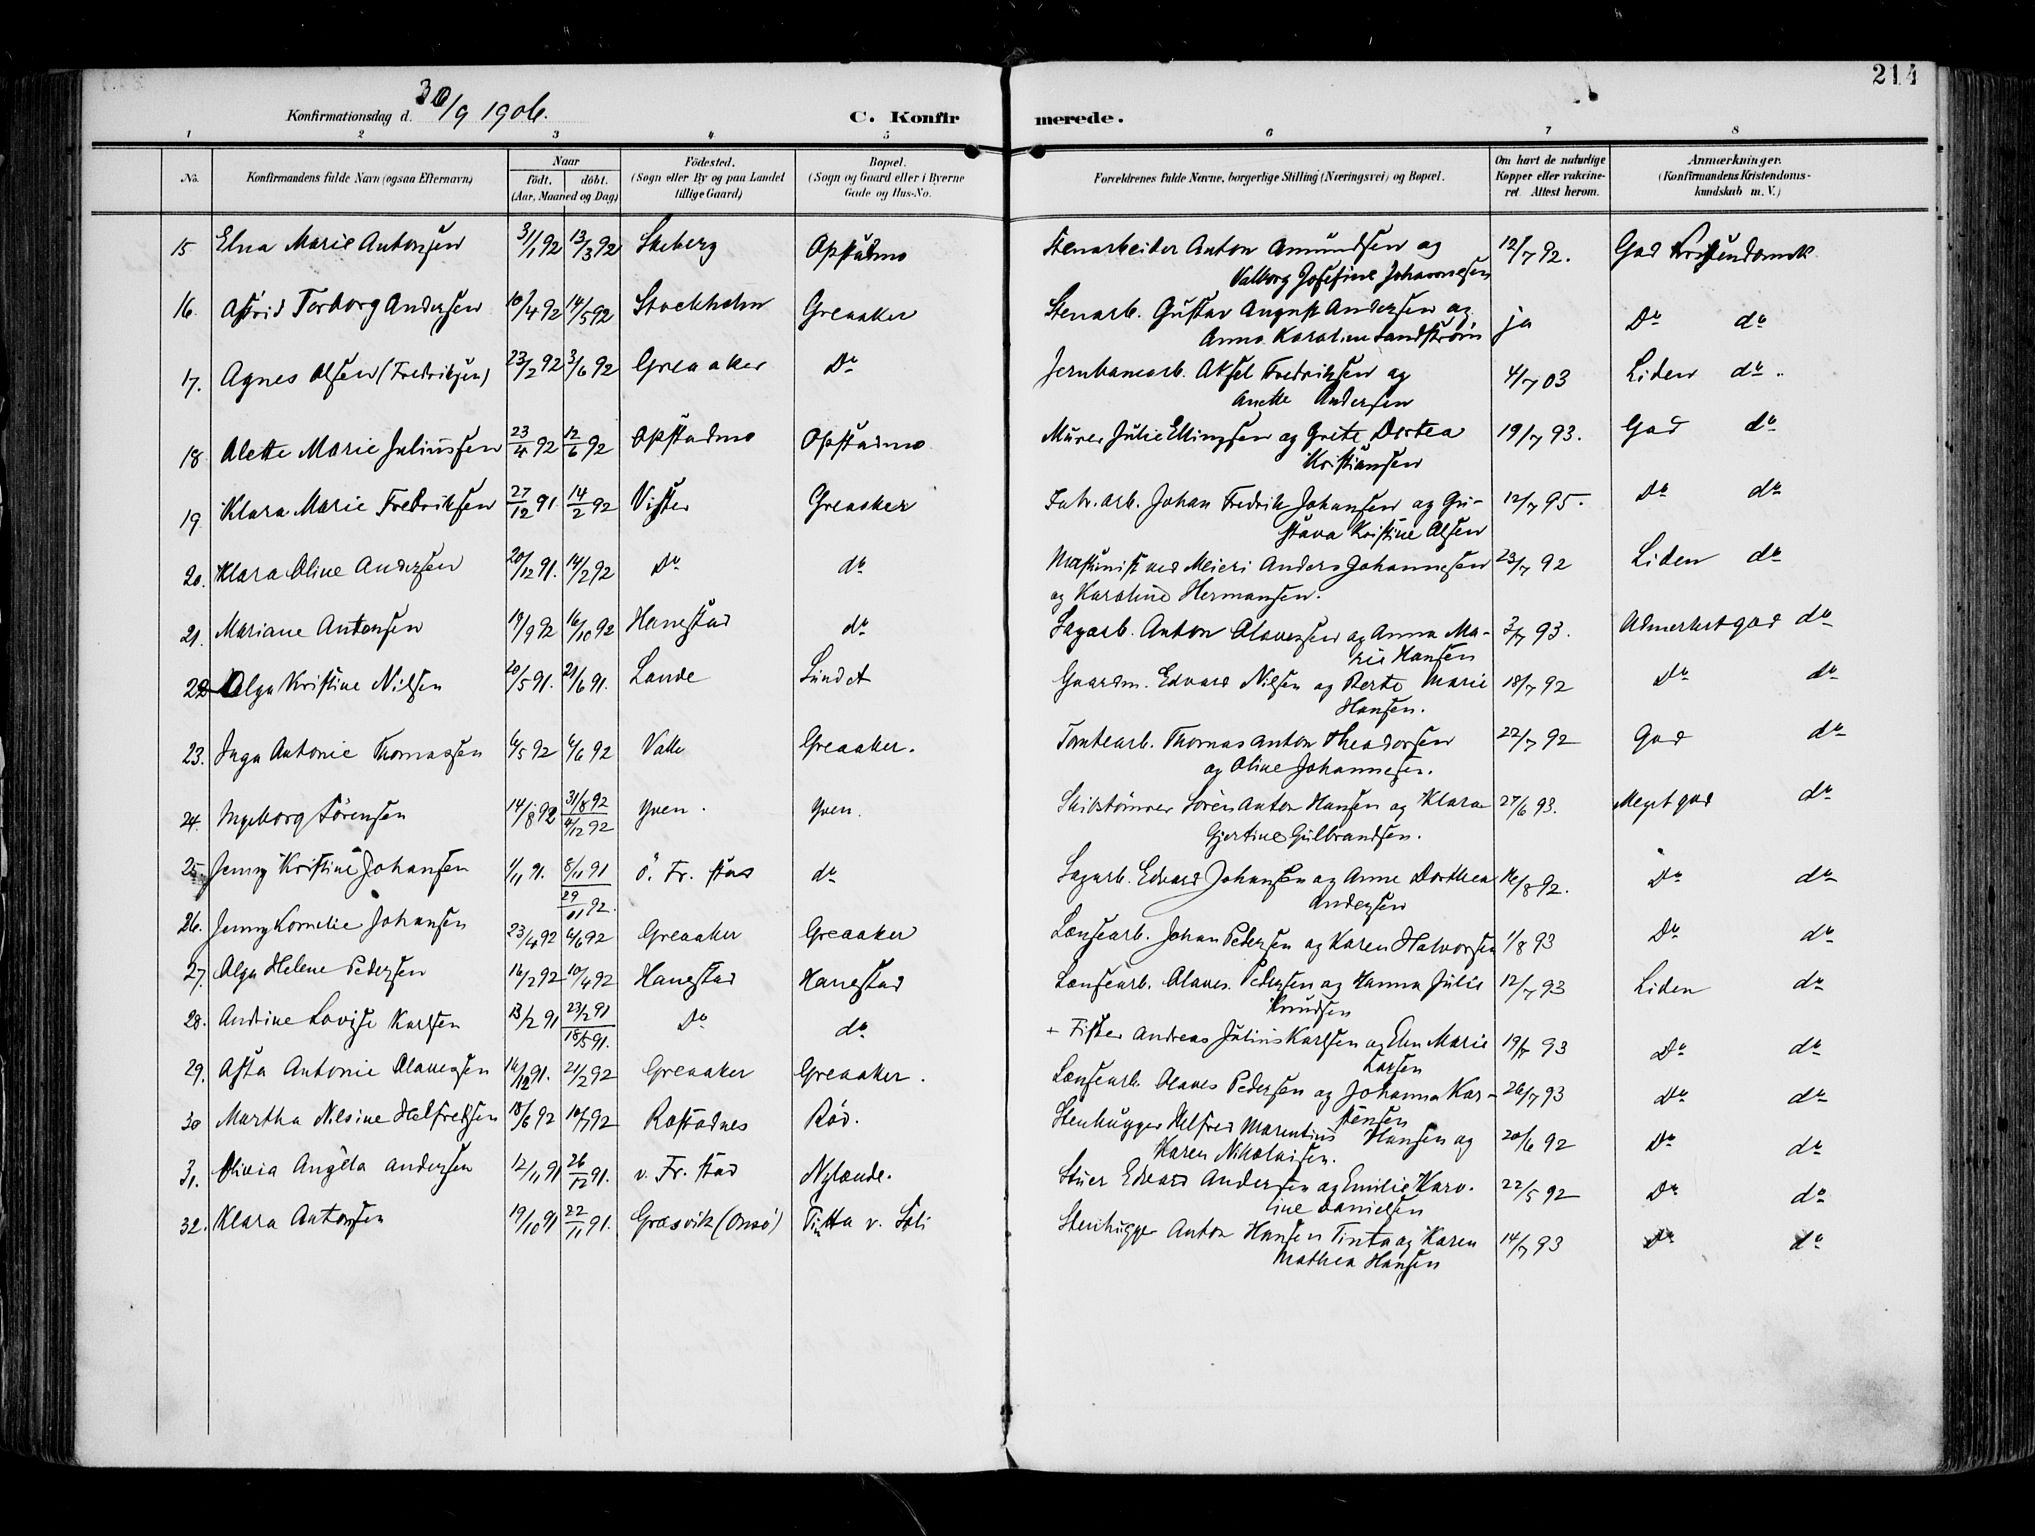 214
Konfirmationsdag d. 30/9 1906.
C. Konfirmerede.
1 2 3 4 5 6 7 8
No. Konfirmandens fulde Navn (ogsaa Efternavn) Naar födt. döbt. (Aar, Maaned og Dag) Födested. (Sogn eller By og paa Landet tillige Gaard) Bopæl. (Sogn og Gaard eller i Byerne Gade og Hus-No. Forældrenes fulde Navne, borgerlige Stilling (Næringsvei) og Bopæl. Om havt de naturlige Kopper eller vakcineret. Attest herom. Anmærkninger. (Konfirmandens Kristendomskundskab m. V.)
15 Elna Marie Antonsen 31/1 92 13/3 92 Skeberg Opstadmo Stenarbeider Anton Amundsen og 12/7 92. God Kristendomsk.
Valborg Josefine Johannesen
16. Astrid Torborg Andersen 10/4 92 14/5 92 Stockholm Greaaker Stenarb. Gustav August Andersen og ja Do do
Anna Karoline Sandström
17. Agnes Olsen (Fredriksen) 23/2 92 3/6 92 Greaaker Do Jernbanearb. Aksel Fredriksen og 4/7 03 Liden do.
Anette Andersen
18 Alette Marie Juliussen 23/4 92 12/6 92 Opstadmo Opstadmo Murer Julie Ellingsen og Grete Dortea 19/7 93. God do
Kristiansen
19 Klara Marie Fredriksen 27/12 91. 14/2 92 Vister Greaaker Fabr.arb. Johan Fredrik Johansen og Gu- 12/7 95. Do do
stava Kristine Olsen
20. Klara Oline Andersen 20/12 91. 14/2 92 Do do Maskinist ved Meieri Anders Johannesen 23/7 92 Liden do
og Karoline Hermansen.
21. Mariane Antonsen 19/9 92 16/10 92 Hanestad do Sagarb. Anton Olavesen og Anna Ma- 3/7 93. Udmerket god do
rie Hansen
22 Olga Kristine Nilsen 20/5 91. 21/6 91. Lande Lundet Gaardm. Edvard Nilsen og Berte Marie 18/7 92 Do do
Hansen.
23. Inga Antonie Thomassen 6/5 92 6/6 92 Valle Greaaker. Tomtearb. Thomas Anton Theodorsen 22/7 92 God do
og Oline Johannesen.
24. Ingeborg Sörensen 14/8 92 31/8 92 4/12 92 Yven. Yven. Skibstömrer Sören Anton Hansen og Klara 27/6 93. Meget god do
Gjertine Gulbrandsen.
25. Jenny Kristine Johansen 1/11 91. 8/11 91 29/01 92. Ö. Fr. stad do Sagarb. Edvard Johansen og Anne Dorthea 16/8 92. Do do
Andersen
26. Jenny Kornelie Johansen 23/4 92 6/6 92 Greaaker Greaaker Lænsearb. Johan Pedersen og Karen Halvorsen 1/8 93 Do do
27. Olga Helene Pedersen 16/2 92 10/4 92 Hanestad Hanestad Lænsearb. Olaves Pedersen og Hanna Julie 12/7 93 Liden do
Knudsen
28. Andrine Lovise Karlsen 13/2 91 23/2 91 18/5 91. Do do + Fisker Andreas Julius Karlsen og Elen Marie 19/7 93 Do do
Larsen
29. Asta Antonie Olavesen 16/12 91. 21/2 92 Greaaker Greaaker. Lænsearb. Olaves Pedersen og Johanna Kar- 26/7 93 Do do
stensen
30 Martha Nilsine Helfredsen 18/6 92 10/7 92 Rostadnes Röd. Stenhugger Helfred Marentius Hansen og 20/6 92 Do do
Karen Nikolaisen.
31. Olivia Angela Andersen 12/11 91 26/12 91. v. Fr. stad Nylænde. Stuer Edvard Andersen og Emilie Karo- 22/5 92 Do do
line Danielsen
32. Klara Antonsen 19/10 91 22/11 91. Græsvik (Onsö) Tinta v. Soli Stenhugger Anton Hansen Tinta og Karen 14/7 93 Do do
Mathea Hansen